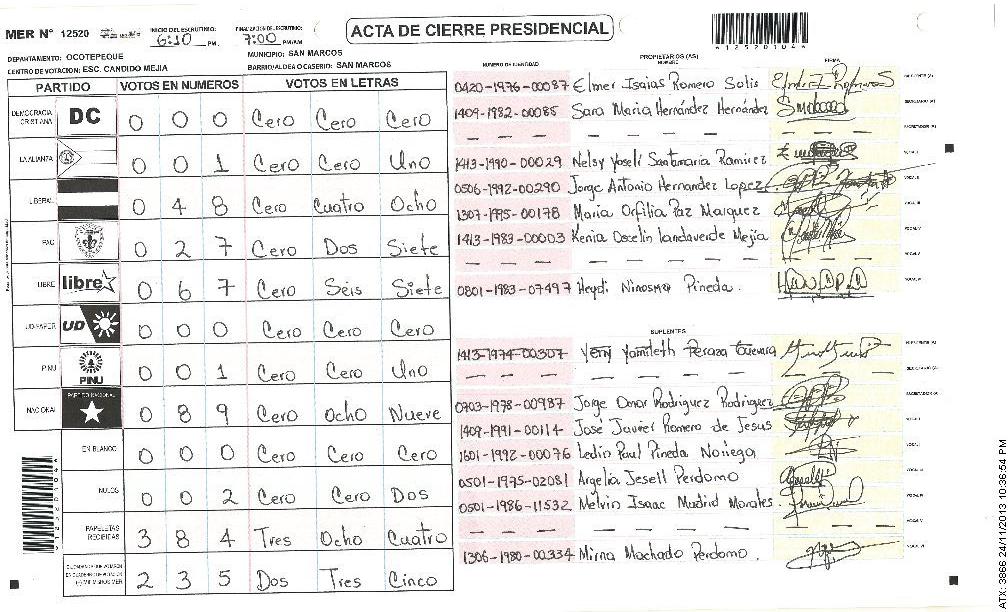 MER N° 12520
INICIO DEL ESCRUTINIO: 6:10 PM.
FINALIZACION DE ESCRUTINIO: 7:00 PM/AM
ACTA DE CIERRE PRESIDENCIAL
*12520104*
DEPARTAMENTO: OCOTEPEQUE
MUNICIPIO: SAN MARCOS
CENTRO DE VOTACION: ESC. CANDIDO MEJIA
BARRIO/ALDEA O CASERIO: SAN MARCOS
PARTIDO VOTOS EN NUMEROS VOTOS EN LETRAS
DEMOCRACIA CRISTIANA DC 0 0 0 Cero Cero Cero
LA ALIANZA 0 0 1 Cero Cero Uno
LIBERAL 0 4 8 Cero Cuatro Ocho
PAC 0 2 7 Cero Dos Siete
LIBRE libre 0 6 7 Cero Séis Siete
UD-FAPER UD 0 0 0 Cero Cero Cero
PINU PINU 0 0 1 Cero Cero Uno
NACIONAL PARTIDO NACIONAL 0 8 9 Cero Ocho Nueve
EN BLANCO 0 0 0 Cero Cero Cero
NULOS 0 0 2 Cero Cero Dos
PAPELETAS RECIBIDAS 3 8 4 Tres Ocho Cuatro
2 3 5 Dos Tres Cinco
NUMERO DE IDENTIDAD
PROPIETARIOS (AS)
NOMBRE
FIRMA
0420-1976-00087 Elmer Isaias Romero Solis PRESIDENTE (A)
1409-1982-00085 Sara Maria Hernández Hernández SECRETARIO (A)
— — — — — — ESCRUTADOR (A)
1413-1990-00029 Nelsy Yoseli Santamaria Ramirez VOCAL I
0506-1992-00290 Jorge Antonio Hernandez Lopez VOCAL II
1307-1995-00178 Maria Orfilia Paz Marquez VOCAL III
1413-1983-00003 Kenia Oscelin Landaverde Mejía VOCAL IV
— — — — — — VOCAL V
0801-1983-07497 Heydi Ninosma Pineda. VOCAL VI
SUPLENTES
1413-1974-00307 Yeny Yamileth Peraza Guevara PRESIDENTE (A)
— — — — — — SECRETARIO (A)
0703-1978-00987 Jorge Omar Rodriguez Rodriguez ESCRUTADOR (A)
1409-1991-00114 José Javier Romero de Jesus
1601-1992-00076 Ledin Paul Pineda Noriega
0501-1975-02081 Argelia Jesell Perdomo
0501-1986-11532 Melvin Isaac Madrid Morales.
— — — — — — VOCAL V
1306-1980-00334 Mirna Machado Perdomo. VOCAL VI
ATX: 3866 24/11/2013 10:36:54 PM